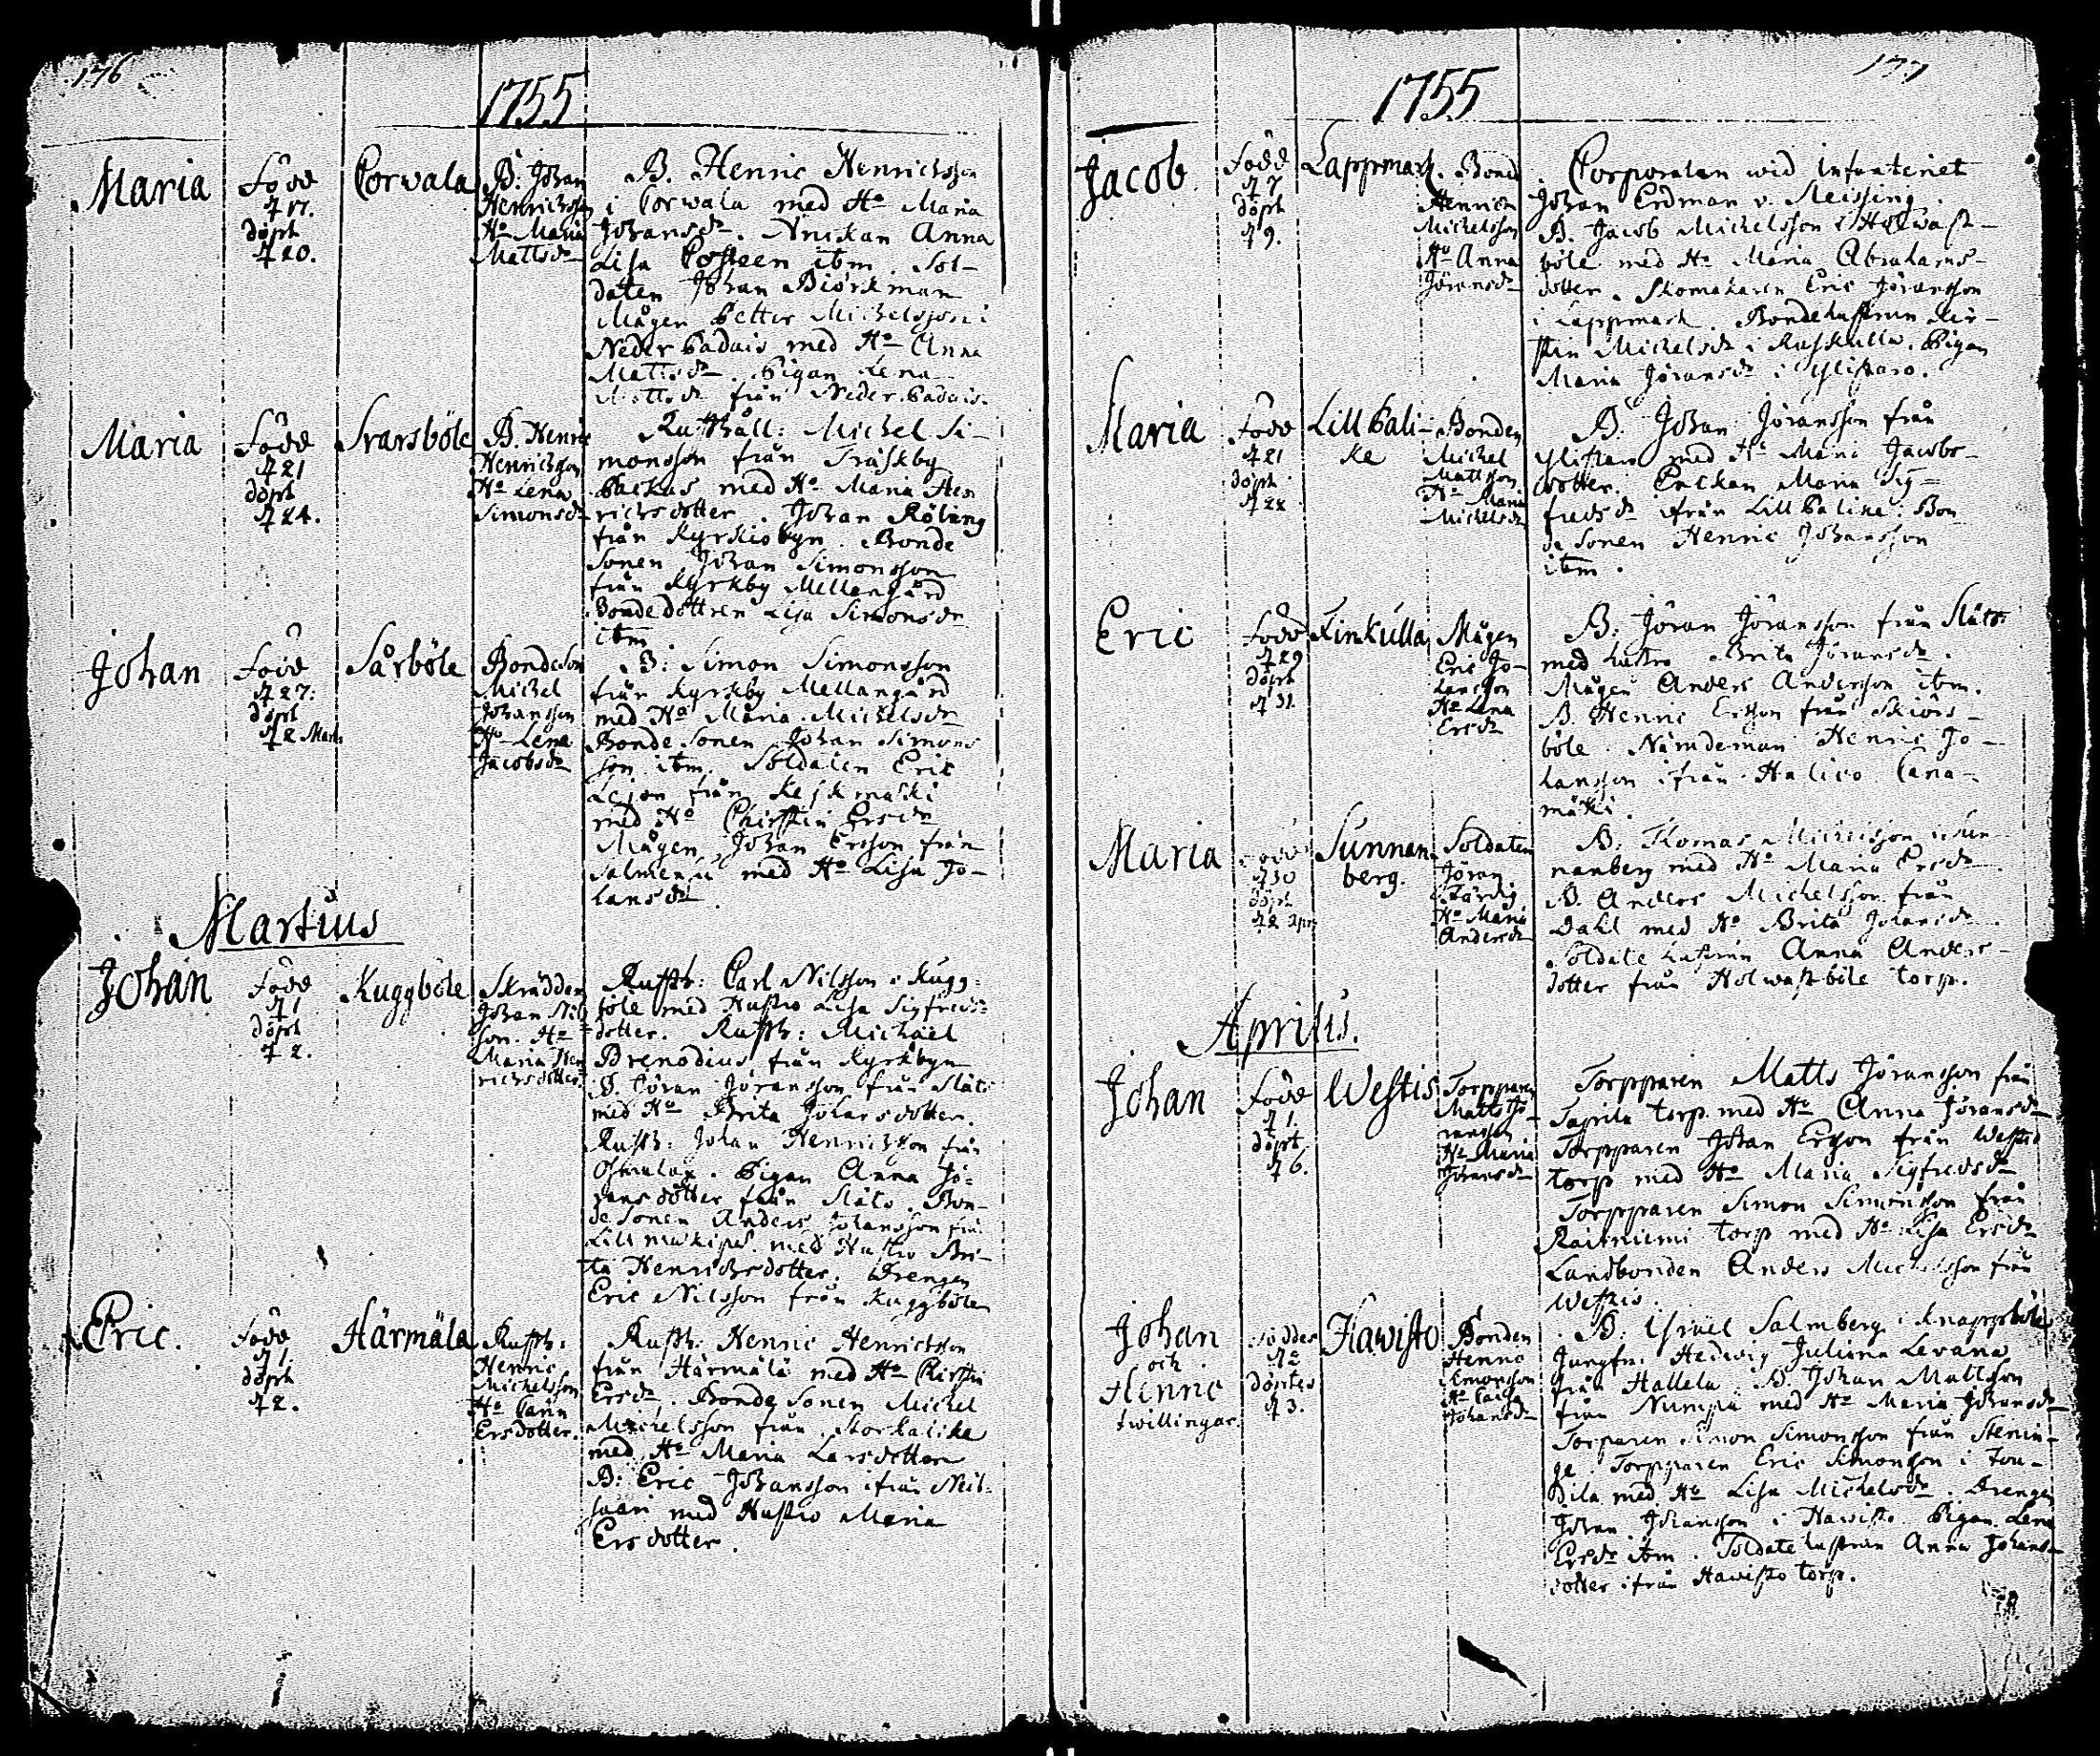 176
1755
Maria
Född
d. 17.
döpt
d. 20.
Corwala
B. Johan
Henrichsson
Ho Maria
Mattsdr
B. Henric Henrichsson
i Corwala med Ho Maria
Johansdr. Änckan Anna
Lisa Posteen itm. Sol-
daten Johan Biörkman
Mågen Petter Michelsson i
Neder Padais med Ho Anna
Mattsdr. Pigan Lena
Mattsdr från Neder Padais.
Maria
Född
d. 21
döpt
d. 24.
Svarsböle
B. Henric
Henrichsson
Ho Lena
Simonsdr
Rusthåll: Michel Si-
monsson från Träskby
Backas med Ho Maria Hen
richsdotter. Johan Röling
från Kyrkiobyn. Bonde
Sonen Johan Simonsson
från Kyrkby Mellangård
Bondedottren Lisa Simonsdr
itm
Johan
Född
d. 27.
döpt
d. 2 Mart.
Sårböle
BondeSon
Michel
Johansson
Ho Lena
Jacobsdr
B: Simon Simonsson
från Kyrkby Mellangård
med Ho Maria Michelsdr
Bonde Sonen Johan Simons
son itm. Soldaten Eric
Lejon från Keskmaski
med Ho Chirstin Ersdr
Mågen Johan Ersson från
med Ho Lisa Jo-
hansdr.
Martius
Johan
Född
d. 1
döpt
d. 2.
Kuggböle
Skrädden
Johan Nils
son. Ho
Maria Hen
richsdotter
Rusth: Carl Nilsson i Kugg:
böle med Hustro Lisa Sigfreds-
dotter. Rusth: Michael
Brenodius från Kyrkbyn
B. Jöran Jöransson från Släts
med Ho Brita Johansdotter.
Rusth: Johan Henrichsson från
. Pigan Anna Jö-
ransdotter från Släts. Bon-
deSonen Anders Johansson från
Lill med Hustro Bri-
ta Henrichsdotter. Drengen
Eric Nilsson från Kuggböle
Eric.
Född
d. 1
döpt
d. 2.
Härmälä
Rusth:
Henric
Michelsson
Ho Carin
Ersdotter.
Rusth. Henric Henrichsson
från Härmälä med Ho Chirstin
Ersdr. Bonde Sonen Michel
Michelsson från Storpalike
med Ho Maria Larsdotter
B: Eric Johansson ifrån
med Hustro Maria
Ersdotter.
177
1755
Jacob
Född
d. 7
döpt
d. 9.
Lappmark.
Bond
Henrich
Michelsson
Ho Anna
Jöransdr
Corporalen wid Infanteriet
Johan Erdman v. Meissing.
B. Jacob Michelsson i Holwast-
böle med Ho Maria Abrahams-
dotter. Skomakaren Eric Jöransson
i Lappmark. Bondehustrun Kir-
stin Michelsdr i Kaskulla. Pigan
Maria Jöransdr i Yliskaro.
Maria
Född
d. 21
döpt
d. 22
Lill Pali-
ke
Bonden
Michel
Mattsson
Ho Maria
Michelsdr
B. Johan Jöransson från
Yliskaro med Ho Maria Jacobs-
dotter. Enckan Maria Sig-
fredsdr ifrån Lill Palike. Bon
de Sonen Henric Johansson
itm.
Eric
Född
d. 29
döpt
d. 31
Finkulla
Mågen
Eric Jo-
hansson
Ho Lena
Ersdr
B. Jöran Jöransson från Släts
med hustro Brita Jöransdr.
Mågen Anders Andersson itm.
B. Henric Ersson från Skiörs-
böle. Nämdeman Henric Jo-
hansson ifrån Halico Cana-
mäki.
Maria
Född
d. 30
döpt
d. 2 Apr.
Sunnan-
berg.
Soldaten
Jöran
Färdig
Ho Maria
Andersdr
B. Thomas Michelsson i Sun-
nanberg med Ho Maria Ersdr.
B. Anders Michelsson från
Dahl med Ho Brita Johansdr.
Soldate hustrun Anna Anders-
dotter från Holwastböle torp.
Aprilis.
Johan
Född
d. 1.
döpt
d. 6.
Westis
Torpparen
Matts Jö-
ransson
Ho Maria
Johansdr
Torpparen Matts Jöransson från
Taprila torp med Ho Anna Jöransdr
Torpparen Johan Ersson från Westis
torp med Ho Maria Sigfredsdr
Torpparen Simon Simonsson från
Kairniemi torp med Ho Lisa Ersdr
Landbonden Anders Michelsson från
Westis.
Johan
och
Henric
twillingar.
Födder
d. 2
döptes
d. 3.
Hawisto
Bonden
Henric
Simonsson
Ho Caisa
Johansdr
B. Israel Salmberg i Knapsböle
Jungfru Hedwig Juliana Levana
från Hallela. B. Johan Mattsson
från Numpa med Ho Maria Johansdr
Torparen Simon Simonsson från Stenin-
ge. Torpparen Eric Simonsson i Tou-
dila med Ho Lisa Michelsdr. Drengen
Johan Johansson i Hawisto. Pigan Lena
Ersdr itm. Soldate hustrun Anna Johans-
dotter ifrån Hawisto torp.